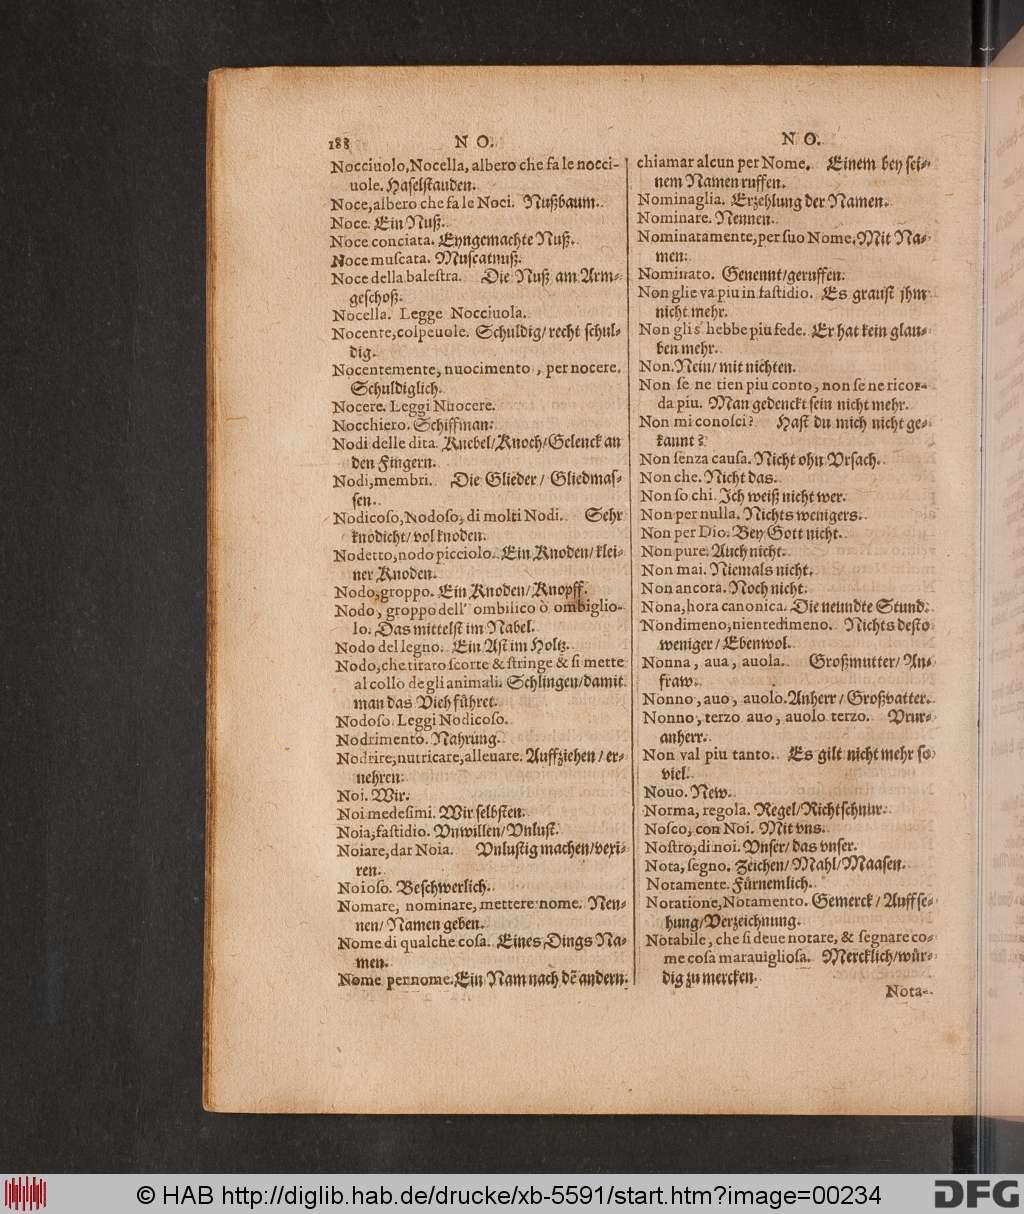 188 N O.
Nocciuolo, Nocella, albero che fa le nocci-
uole. Haselstauden.
Noce, albero che fa le Noci. Nußbaum.
Noce. Ein Nuß.
Noce conciata. Eyngemachte Nuß.
Noce muscata. Muscatnuß.
Noce della balestra. Die Nuß am Arm-
geschoß.
Nocella. Legge Nocciuola.
Nocente, colpeuole. Schuldig/ recht schul-
dig.
Nocentemente, nuocimento, per nocere.
Schuldiglich.
Nocere. Leggi Nuocere.
Nocchiero. Schiffman.
Nodi delle dita. Knebel/Knoch/Gelenck an
den Fingern.
Nodi, membri. Die Glieder/ Gliedmas-
sen.
Nodicoso, Nodoso, di molti Nodi. Sehr
knodicht/ vol knoden.
Nodetto, nodo picciolo. Ein Knoden/ klei-
ner Knoden.
Nodo, groppo. Ein Knoden/ Knopff.
Nodo, groppo dell' ombilico ò ombiglio-
lo. Das mittelst im Nabel.
Nodo del legno. Ein Ast im Holtz.
Nodo, che tirato scorte & stringe & si mette
al collo de gli animali. Schlingen/damit
man das Vieh führet.
Nodoso. Leggi Nodicoso.
Nodrimento. Nahrung.
Nodrire, nutricare, alleuare. Auffziehen/ er-
nehren.
Noi. Wir.
Noi medesimi. Wir selbsten.
Noia, fastidio. Vnwillen/ Vnlust.
Noiare, dar Noia. Vnlustig machen/ vexi-
ren.
Noioso. Beschwerlich.
Nomare, nominare, mettere nome. Nen-
nen/ Namen geben.
Nome di qualche cosa. Eines Dings Na-
men.
Nome per nome. Ein Nam nach dẽ andern.
N O.
chiamar alcun per Nome. Einem bey sei-
nem Namen ruffen.
Nominaglia. Erzehlung der Namen.
Nominare. Nennen.
Nominatamente, per suo Nome. Mit Na-
men.
Nominato. Genennt/geruffen.
Non glie va piu in fastidio. Es graust jhm
nicht mehr.
Non gli s' hebbe piu fede. Er hat kein glau-
ben mehr.
Non. Nein/ mit nichten.
Non se ne tien piu conto, non se ne ricor-
da piu. Man gedenckt sein nicht mehr.
Non mi conosci? Hast du mich nicht ge-
kannt?
Non senza causa. Nicht ohn Vrsach.
Non che. Nicht das.
Non so chi. Ich weiß nicht wer.
Non per nulla. Nichts wenigers.
Non per Dio. Bey Gott nicht.
Non pure. Auch nicht.
Non mai. Niemals nicht.
Non ancora. Noch nicht.
Nona, hora canonica. Die neundte Stund.
Nondimeno, nientedimeno. Nichts desto
weniger/ Ebenwol.
Nonna, aua, auola. Großmutter/ An-
fraw.
Nonno, auo, auolo. Anherr/ Großvatter.
Nonno, terzo auo, auolo terzo. Vrur-
anherr.
Non val piu tanto. Es gilt nicht mehr so
viel.
Nouo. New.
Norma, regola. Regel/Richtschnur.
Nosco, con Noi. Mit vns.
Nostro, di noi. Vnser/ das vnser.
Nota, segno. Zeichen/ Mahl/ Maasen.
Notamente. Fürnemlich.
Notatione, Notamento. Gemerck/ Auffse-
hung/ Verzeichnung.
Notabile, che si deue notare, & segnare co-
me cosa marauigliosa. Mercklich/wür-
dig zu mercken.
Nota-
© HAB http://diglib.hab.de/drucke/xb-5591/start.htm?image=00234 DFG